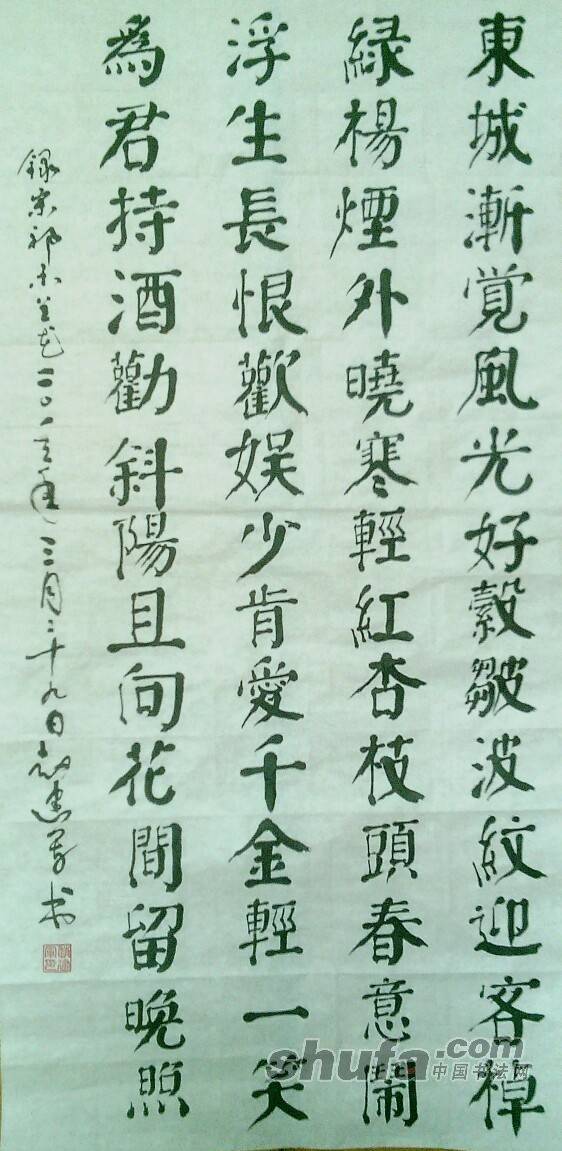 東城漸覚風光好縠皺波紋迎客棹
緑楊煙外曉寒輕紅杏枝頭春意鬧
浮生長恨歡娱少肯愛千金輕一笑
為君持酒勸斜陽且向花間留晚照
錄宋祁木兰花二〇一三年三月二十九日
shufa.com
中国书法网